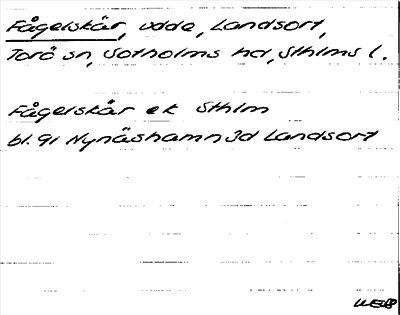 Fågelskär, udde, Landsort,
Torö sn, Sotholms hd, Sthlms l.
Fågelskär ek Sthlm
bl. 91 Nynäshamn 3d Landsort